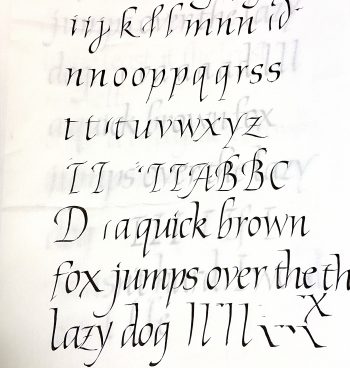 k l l m n n
n n o o p p q q r s s
t t t u v w x y z
I I I I A B B C
D a quick brown
fox jumps over the th
lazy dog l l l l
x